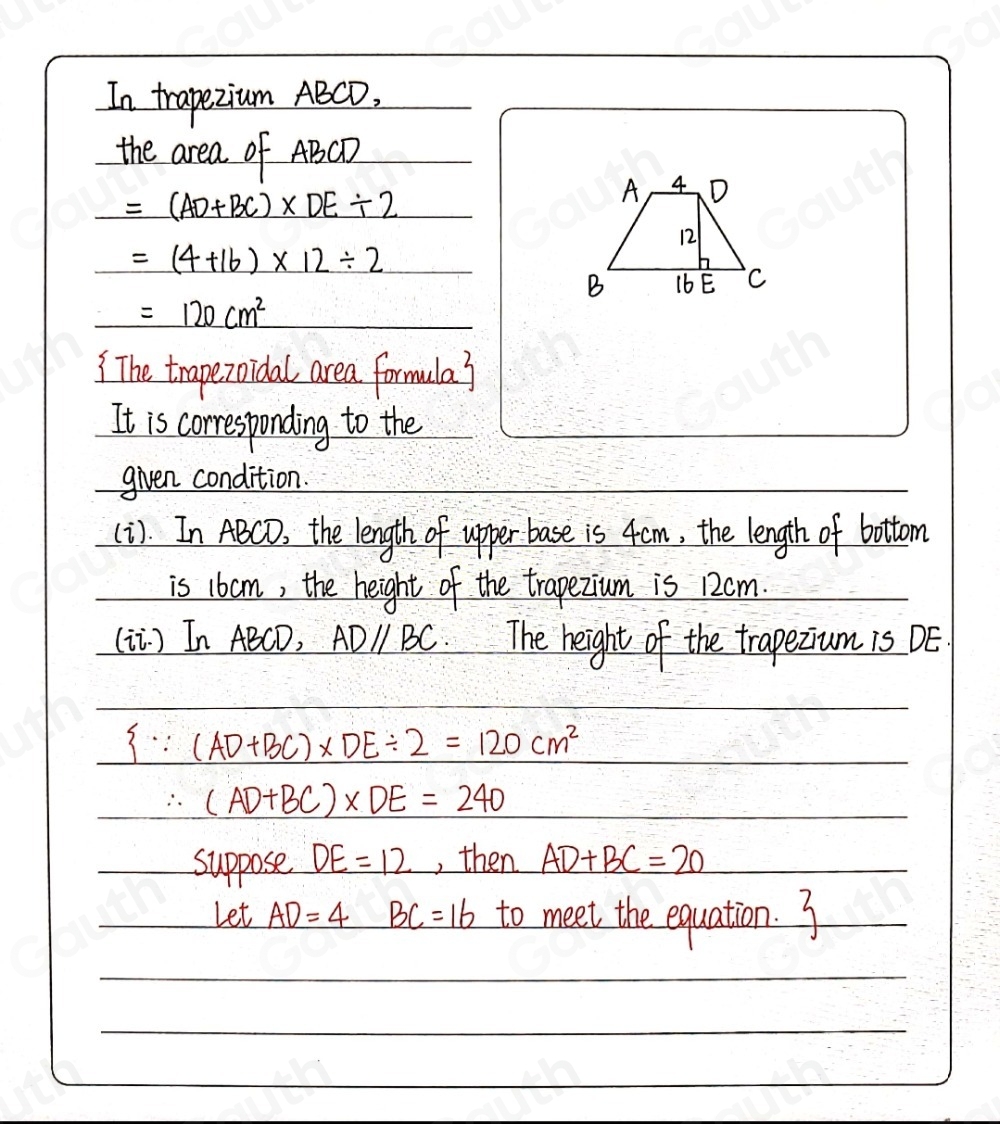 In trapezium ABCD,
the area of ABCD
= (AD+BC) × DE ÷ 2
= (4+16) × 12 ÷ 2
= 120 cm²
{The trapezoidal area formula}
It is corresponding to the
given condition.
A 4 D
12
B 16 E C
(i). In ABCD, the length of upper base is 4cm, the length of bottom
is 16cm, the height of the trapezium is 12cm.
(ii.) In ABCD, AD // BC. The height of the trapezium is DE.
{ ∵ (AD+BC) × DE ÷ 2 = 120 cm²
∴ (AD+BC) × DE = 240
suppose DE = 12, then AD+BC = 20
Let AD = 4 BC = 16 to meet the equation. }
Gauth